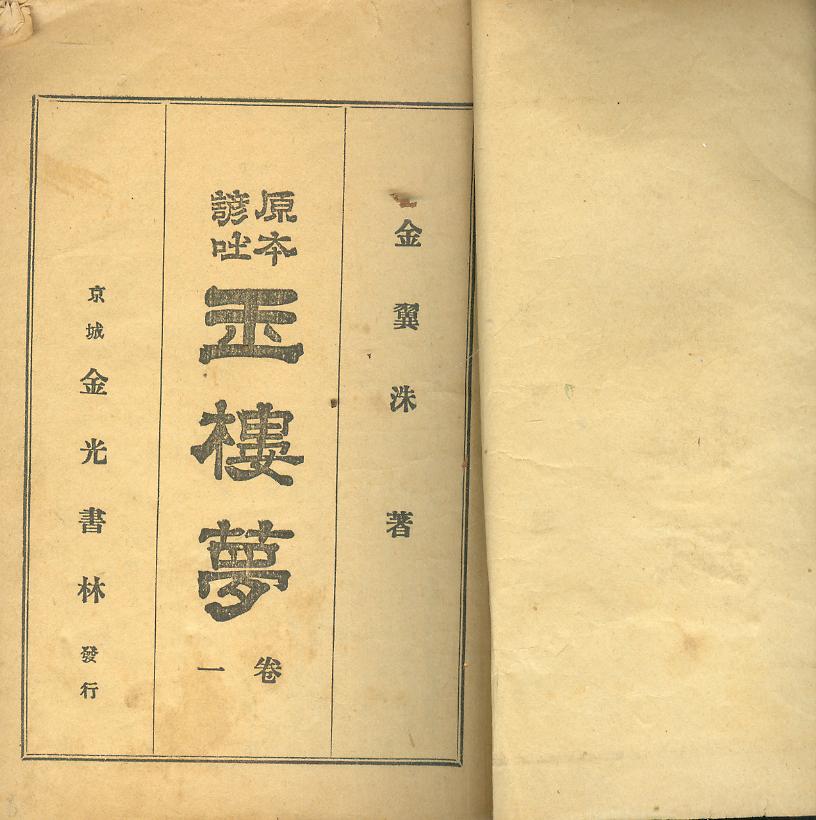 金翼洙 著
原本
諺吐
玉樓夢
卷一
京城 金光書林 發行